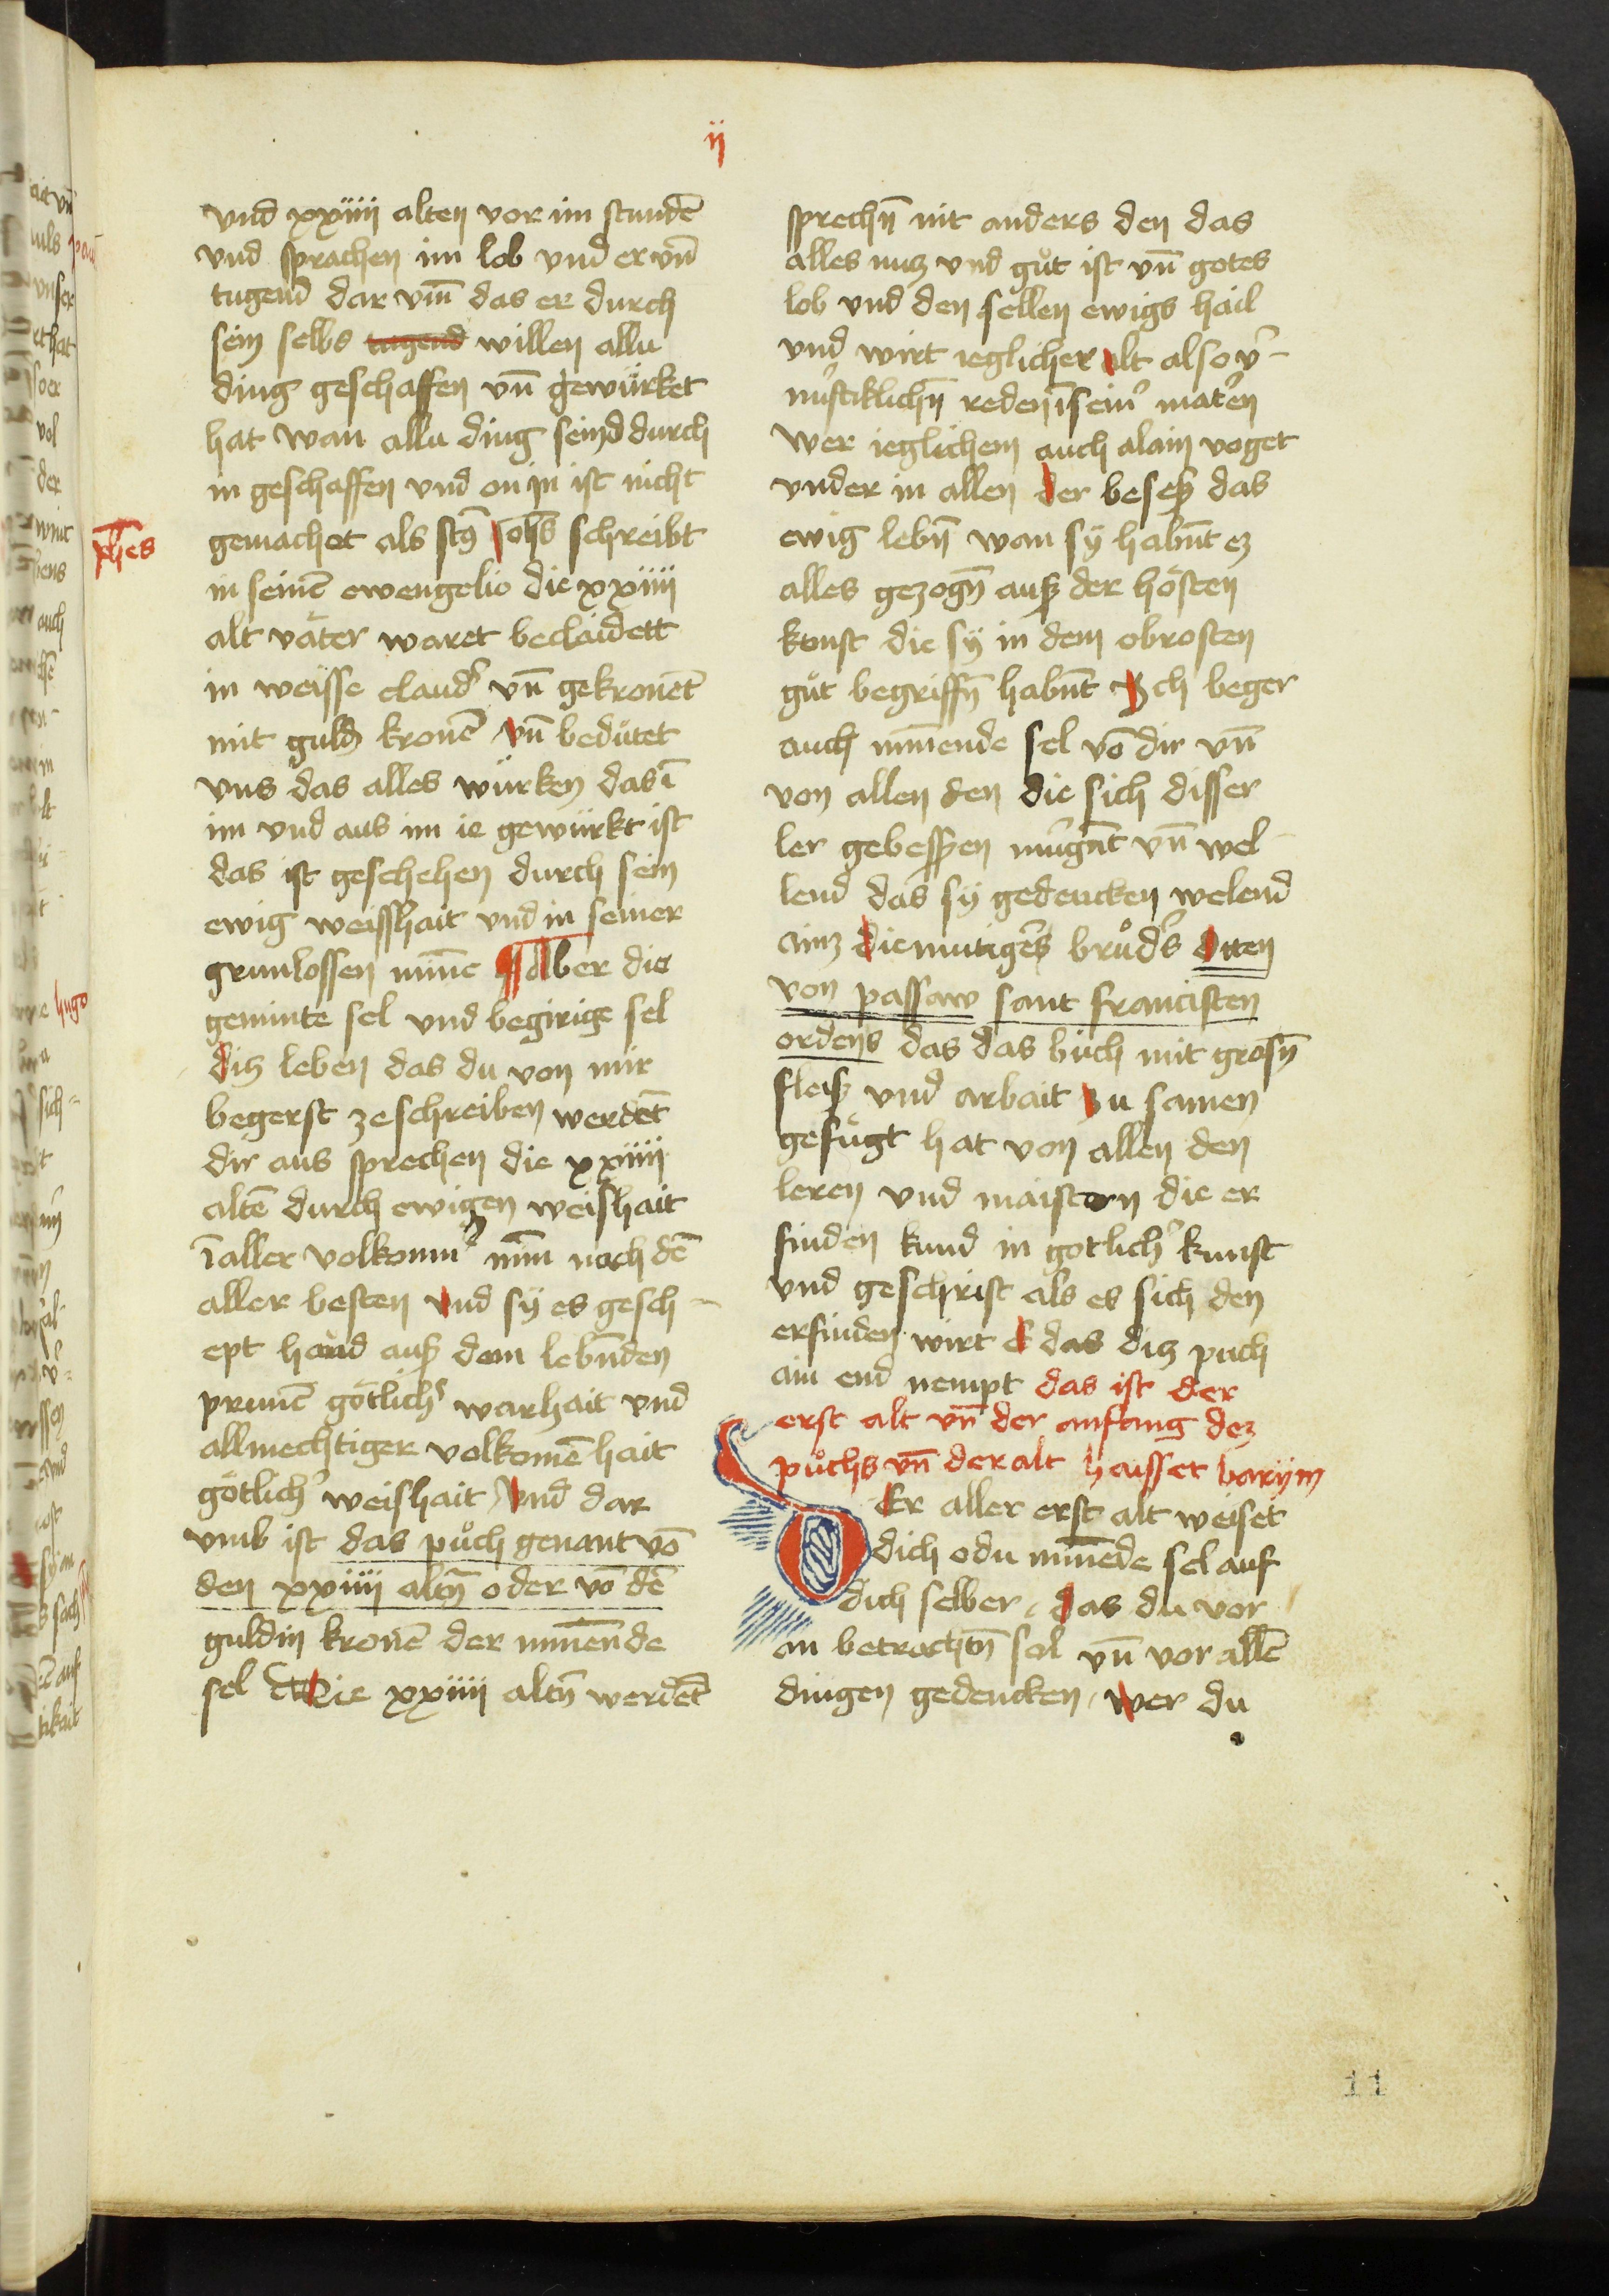 ij
vnd xxiiij alten vor im stundē
vnd sprachen im lob vnd er vn̄
tugend dar vm̄ das er durch
sein selbs tugend willen allu
ding geschaffen vn̄ gewürket
hat wan allu ding seind durch
in geschaffen vnd on in ist nicht
gemachet als sct9 Johs̄ schreibt
Johes
in seinē ewengelio die xxiiij
alt väter waret beclaidett
in weisse claidʼ vn̄ gekronēt
mit guldī kronē vn̄ bedütet
vns das alles würken das ī
im vnd aus im ie gewürkt ist
das ist geschehen durch sein
ewig weisshait vnd in seiner
grunlossen minē Aber die
geminte sel vnd begirige sel
diz leben das du von mir
begerst ze schreiben werdēt
dir aus sprechen die xxiiij
altē durch ewigen weishait
ī aller volkomʼ min̄ noch dē
aller besten vnd sy es gesch-
ept haind auß dem lebn̄den
prunē götlichʼ warhait vnd
allmechtiger volkomēhait
götlichʼ weishait vnd dar
vmb ist das pu̇ch genant vō
den xxiiij altn̄ oder vō dē
guldin kronē der min̄ende
sel Die xxiiij altn̄ werdēt
sprechn̄ nit anders den das
alles nucz vnd gu̇t ist vn̄ gotes
lob vnd den sellen ewigs hail
vnd wirt ieglicher alt also vʼ-
nu̇ftiklichn̄ reden ī seinʼ matʼen
wer ieglichem auch alain voget
vnder in allen der beseß das
ewig lebn̄ wan sÿ habn̄t ez
alles gezogn̄ auß der hösten
konst die sÿ in dem obrosten
gu̇t begriffn̄ habn̄t Ich beger
auch min̄ende sel vō dir vn̄
von allen den die sich disser
ler gebessren mu̇gn̄t vn̄ wel-
lend das sÿ gedencken welend
ainz diemutigēs bru̇dʼs otten
von passaw sant francisten
ordens das das buch mit grosn̄
fleiß vnd arbait zu samen
gefu̇gt hat von allen den
leren vnd maistern die er
finden kund in gotlichʼ kunst
vnd geschrift als es sich den
erfinden wirt e das diz puch
ain end nempt das ist der
erst alt vn̄ der anfang dez
pu̇chs vn̄ der alt haisset barÿm
DEr aller erst alt weiset
dich o du min̄ēde sel auf
dich selber, das du vor
an betrachtn̄ sol vn̄ vor allē
dingen gedencken, wer du
11